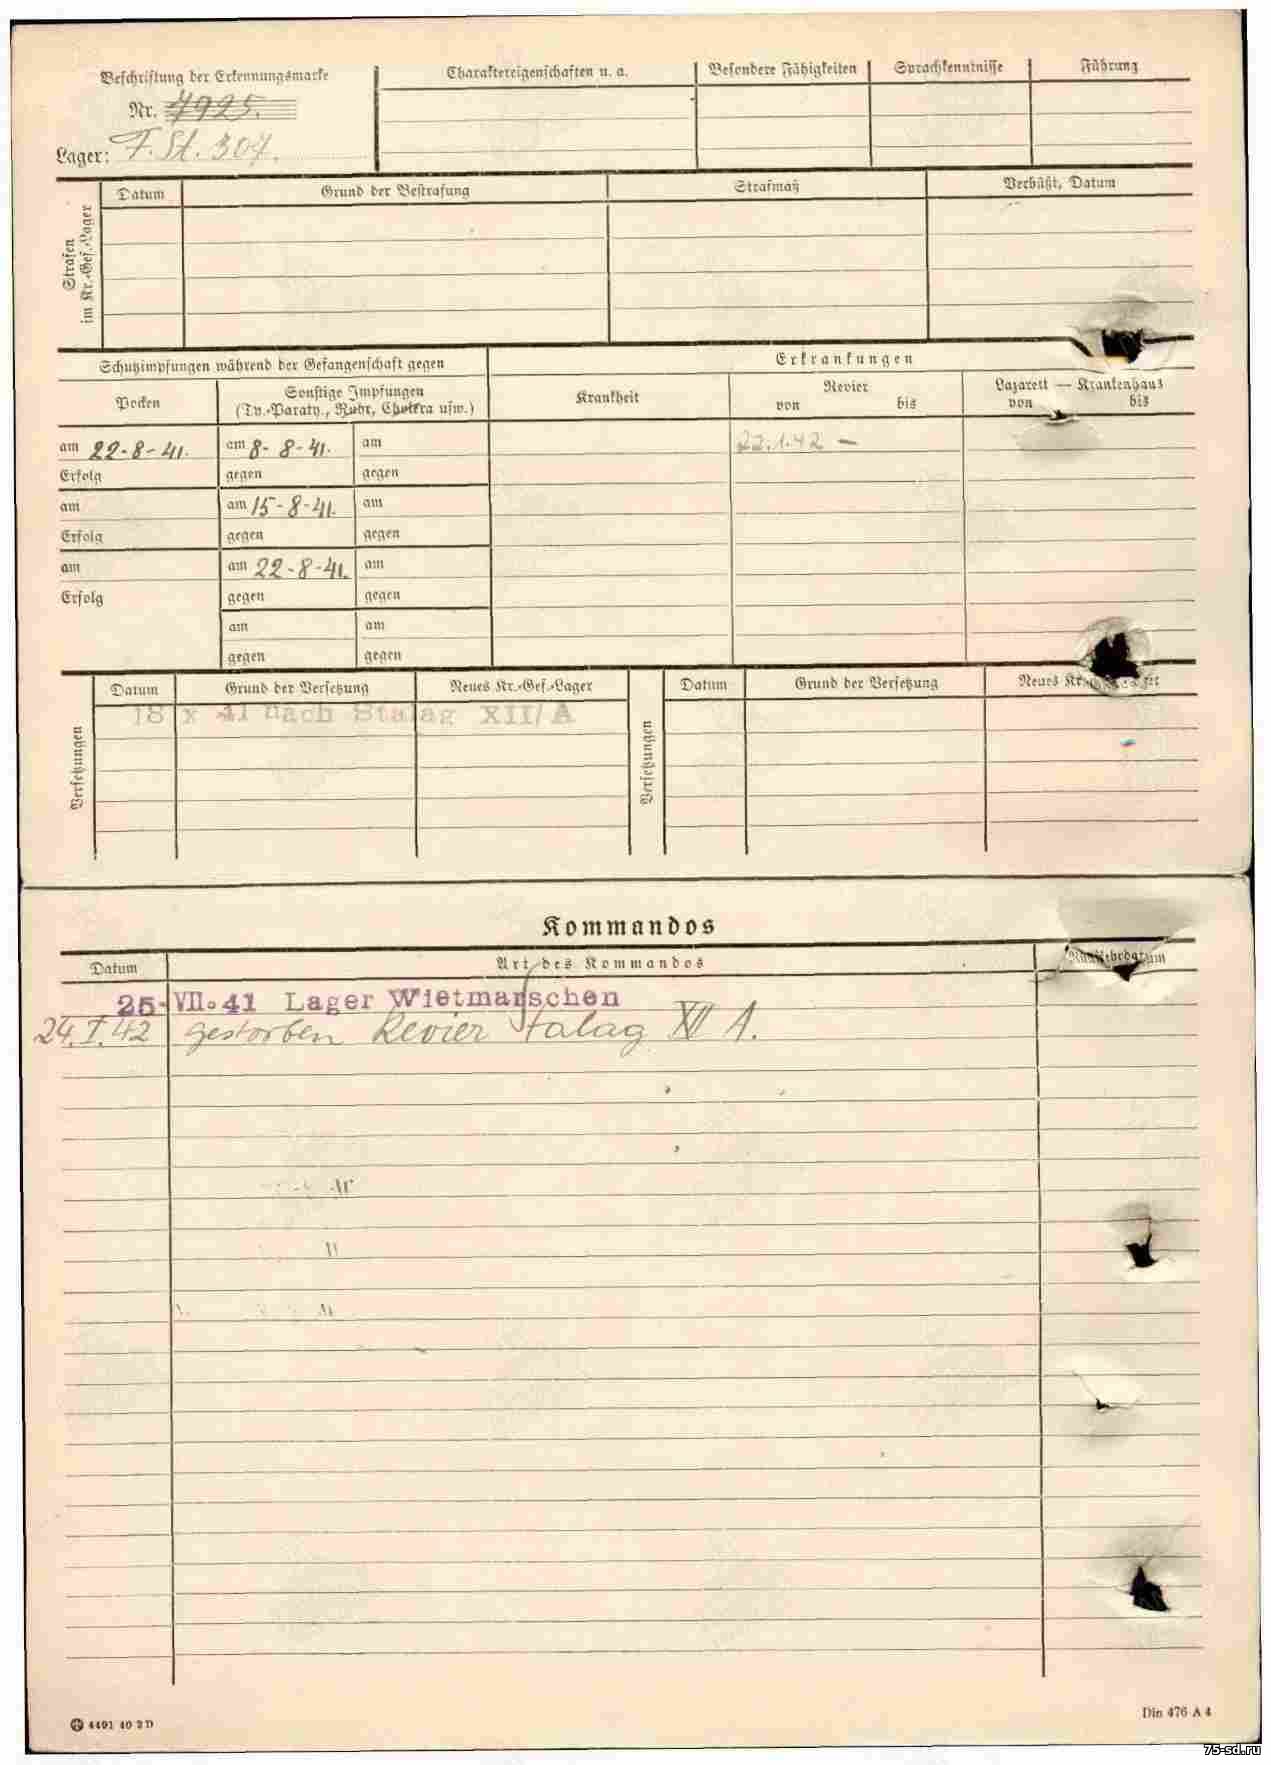 Beschriftung der Erkennungsmarke
Nr. 7925.
Lager: F. St. 307.
Charaktereigenschaften u. a.
Besondere Fähigkeiten
Sprachkenntnisse
Führung
Strafen
im Kr.-Gef.-Lager
Datum
Grund der Bestrafung
Strafmaß
Verbüßt, Datum
Schutzimpfungen während der Gefangenschaft gegen
Erkrankungen
Pocken
Sonstige Impfungen
(Ty.-Paraty., Ruhr, Cholera usw.)
Krankheit
Revier
von bis
Lazarett — Krankenhaus
von bis
am 22-8-41. am 8-8-41. am
22.1.42 –
Erfolg gegen gegen
am am 15-8-41. am
Erfolg gegen gegen
am am 22-8-41. am
Erfolg gegen gegen
am am
gegen gegen
Versetzungen
Datum Grund der Versetzung Neues Kr.-Gef.-Lager
18 X 41 nach Stalag XII/A
Versetzungen
Datum Grund der Versetzung Neues
Kommandos
Datum Art des Kommandos Rückkehrdatum
25-VII.41 Lager Wietmarschen
24.I.42 gestorben Revier Stalag XII A.
4491 40 2 D
Din 476 A 4
75-sd.ru